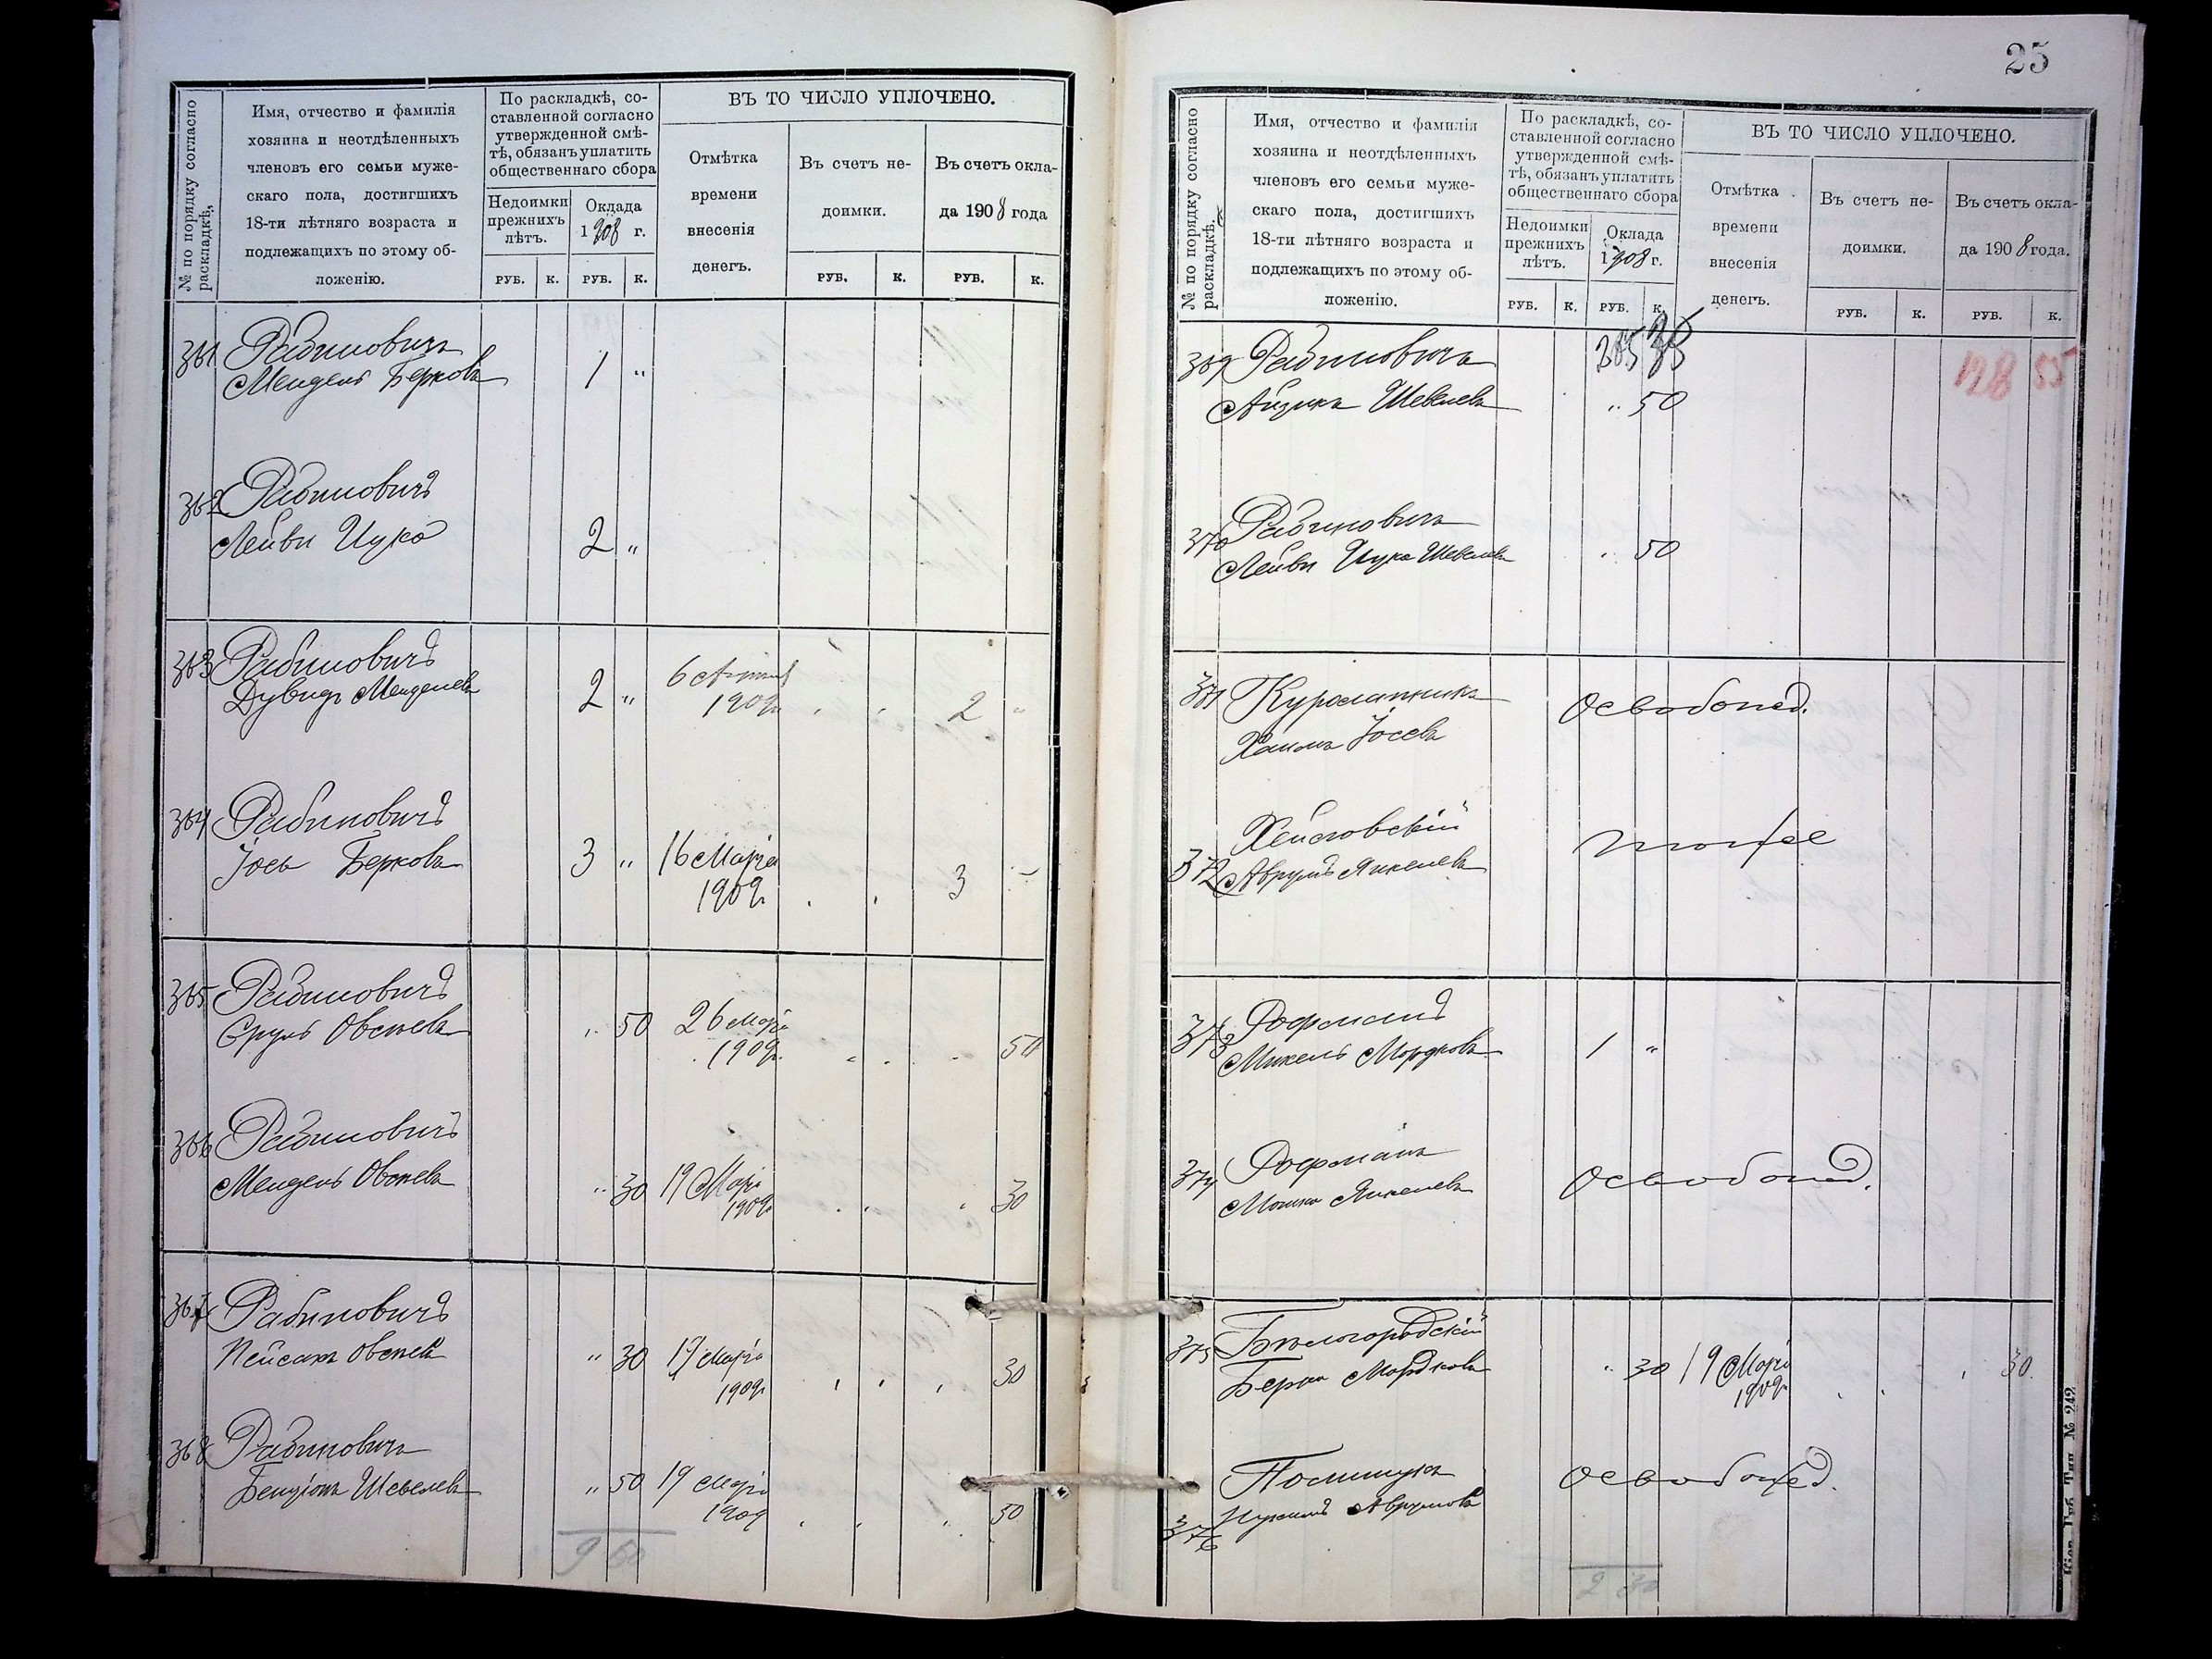 № по порядку согласно
раскладкѣ.
Имя, отчество и фамилія
хозяина и неотдѣленныхъ
членовъ его семьи муже-
скаго пола, достигшихъ
18-ти лѣтняго возраста и
подлежащихъ по этому об-
ложенію.
По раскладкѣ, со-
ставленной согласно
утвержденной смѣ-
тѣ, обязанъ уплатить
общественнаго сбора
Недоимки
прежнихъ
лѣтъ.
Оклада
1908 г.
РУБ. К. РУБ. К.
ВЪ ТО ЧИСЛО УПЛОЧЕНО.
Отмѣтка
времени
внесенія
денегъ.
Въ счетъ не-
доимки.
Въ счетъ окла-
да 1908 года
РУБ. К. РУБ. К.
361 Рабиновичъ
Мендель Берковъ 1 "
362 Рабиновичъ
Лейви Ицко 2 "
363 Рабиновичъ
Дувидъ Менделевъ 2 " 6 1909 2 "
364 Рабиновичъ
Іось Берковъ 3 " 16 Марта
1909 3 -
365 Рабиновичъ
Сруль Овсѣевъ " 50 26 Марта
1909 50
366 Рабиновичъ
Мендель Овсѣевъ " 30 19 Марта
1909 30
367 Рабиновичъ
Пейсахъ Овсѣевъ " 30 17 Марта
1909 30
368 Рабиновичъ
Бенціонъ Шевелевъ " 50 19 Марта
1909 50
9 60
25
№ по порядку согласно
раскладкѣ.
Имя, отчество и фамилія
хозяина и неотдѣленныхъ
членовъ его семьи муже-
скаго пола, достигшихъ
18-ти лѣтняго возраста и
подлежащихъ по этому об-
ложенію.
По раскладкѣ, со-
ставленной согласно
утвержденной смѣ-
тѣ, обязанъ уплатить
общественнаго сбора
Недоимки
прежнихъ
лѣтъ.
Оклада
1908 г.
РУБ. К. РУБ. К.
ВЪ ТО ЧИСЛО УПЛОЧЕНО.
Отмѣтка
времени
внесенія
денегъ.
Въ счетъ не-
доимки.
Въ счетъ окла-
да 1908 года.
РУБ. К. РУБ. К.
369 Рабиновичъ 128 55
Айзикъ Шевелевъ " 50
370 Рабиновичъ
Лейви Ицко Шевелевъ " 50
371 Освобожд.
Хаимъ Іосевъ
372 тоже
Аврумъ Янкелевъ
373 Рофманъ
Михель Мордковъ 1 "
374 Рофманъ
Мошко Янкелевъ Освобожд.
375 Бѣлогородскій
Берко Мордковъ " 30 19 Марта
1909 30
376 Аврумовъ Освобожд.
2 80
Тип. № 242